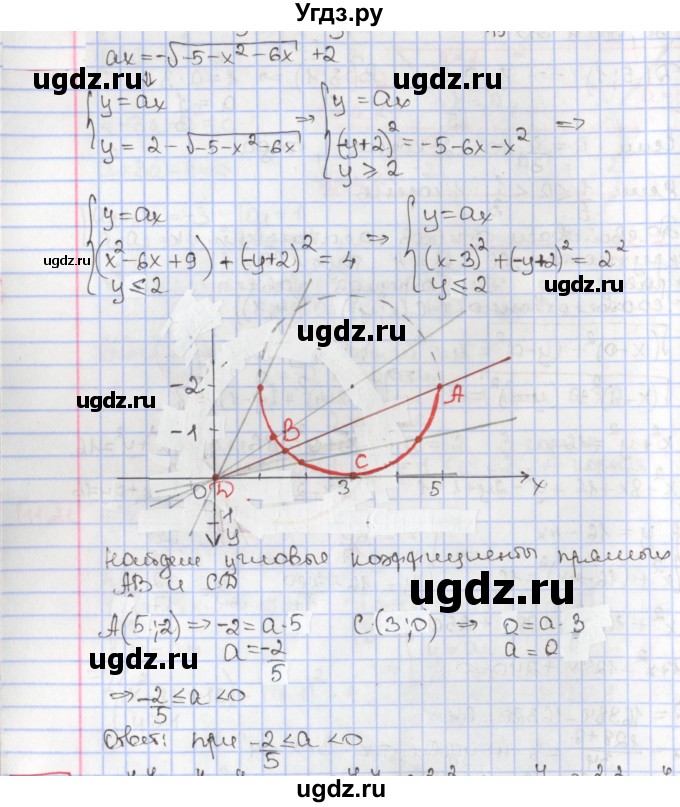 Угдз.ру
ax = -√(-5-x²-6x) +2
⇓
{ y = ax
y = 2 - √(-5-x²-6x)
⇒
{ y = ax
(-y+2)² = -5-6x-x²
y ⩾ 2
⇒
{ y = ax
(x²-6x+9) + (-y+2)² = 4
y ≤ 2
⇒
{ y = ax
(x-3)² + (-y+2)² = 2²
y ≤ 2
ugdz.ru
ugdz.ru
ugdz.ru
ugdz.ru
ugdz.ru
-2
A
-1
B
C
0 D 3 5 x
1
y
Найдем угловые коэффициенты прямых
AB и CD
ugdz.ru
A(5;-2) ⇒ -2 = a·5
C(3;0) ⇒ 0 = a·3
a = -2/5
a = 0
ugdz.ru
⇒ -2/5 ≤ a < 0
Ответ: при -2/5 ≤ a < 0
ugdz.ru
ugdz.ru